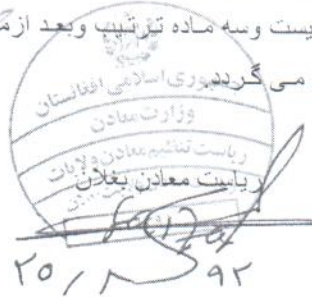 یست وسه ماده ترتیب وبعد ازم
می گردد
جمهوری اسلامی افغانستان
وزارت معادن
ریاست تنظیم معادن ولایات
ریاست معادن بغلان
۲۵ / ۸ ۹۲